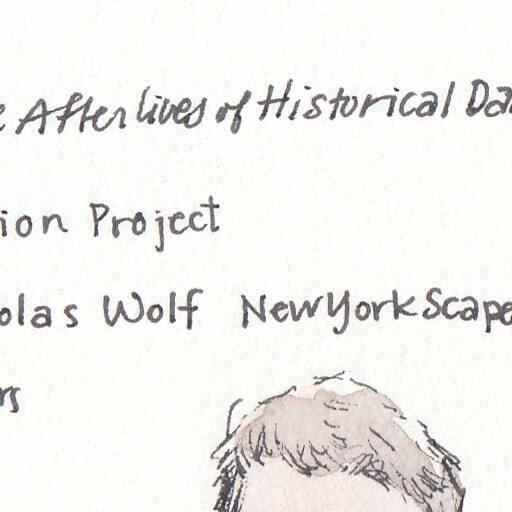 e Afterlives of Historical Da
ion Project
olas Wolf NewYorkScape
rs